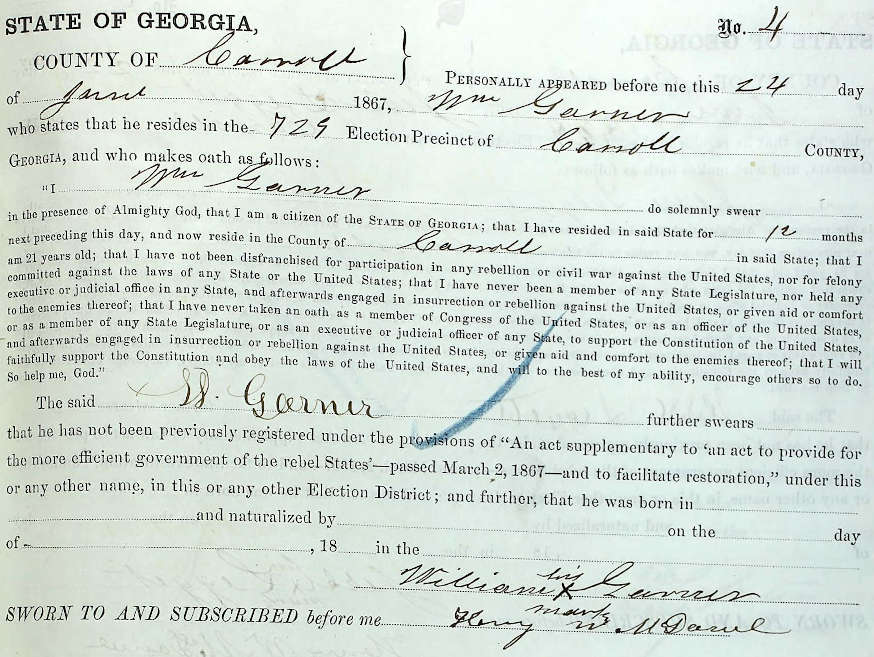 STATE OF GEORGIA,
No. 4
COUNTY OF Carroll }
PERSONALLY APPEARED before me this 24 day
of June 1867, Wm Garner
who states that he resides in the 729 Election Precinct of Carroll COUNTY,
GEORGIA, and who makes oath as follows:
"I Wm Garner do solemnly swear
in the presence of Almighty God, that I am a citizen of the STATE OF GEORGIA; that I have resided in said State for 12 months
next preceding this day, and now reside in the County of Carroll in said State; that I
am 21 years old; that I have not been disfranchised for participation in any rebellion or civil war against the United States, nor for felony
committed against the laws of any State or the United States; that I have never been a member of any State Legislature, nor held any
executive or judicial office in any State, and afterwards engaged in insurrection or rebellion against the United States, or given aid or comfort
to the enemies thereof; that I have never taken an oath as a member of Congress of the United States, or as an officer of the United States,
or as a member of any State Legislature, or as an executive or judicial officer of any State, to support the Constitution of the United States,
and afterwards engaged in insurrection or rebellion against the United States, or given aid and comfort to the enemies thereof; that I will
faithfully support the Constitution and obey the laws of the United States, and will to the best of my ability, encourage others so to do.
So help me, God."
The said W. Garner further swears
that he has not been previously registered under the provisions of "An act supplementary to 'an act to provide for
the more efficient government of the rebel States'—passed March 2, 1867—and to facilitate restoration," under this
or any other name, in this or any other Election District; and further, that he was born in
and naturalized by on the day
of , 18 in the
William his X mark Garner
SWORN TO AND SUBSCRIBED before me Henry W. McDaniel